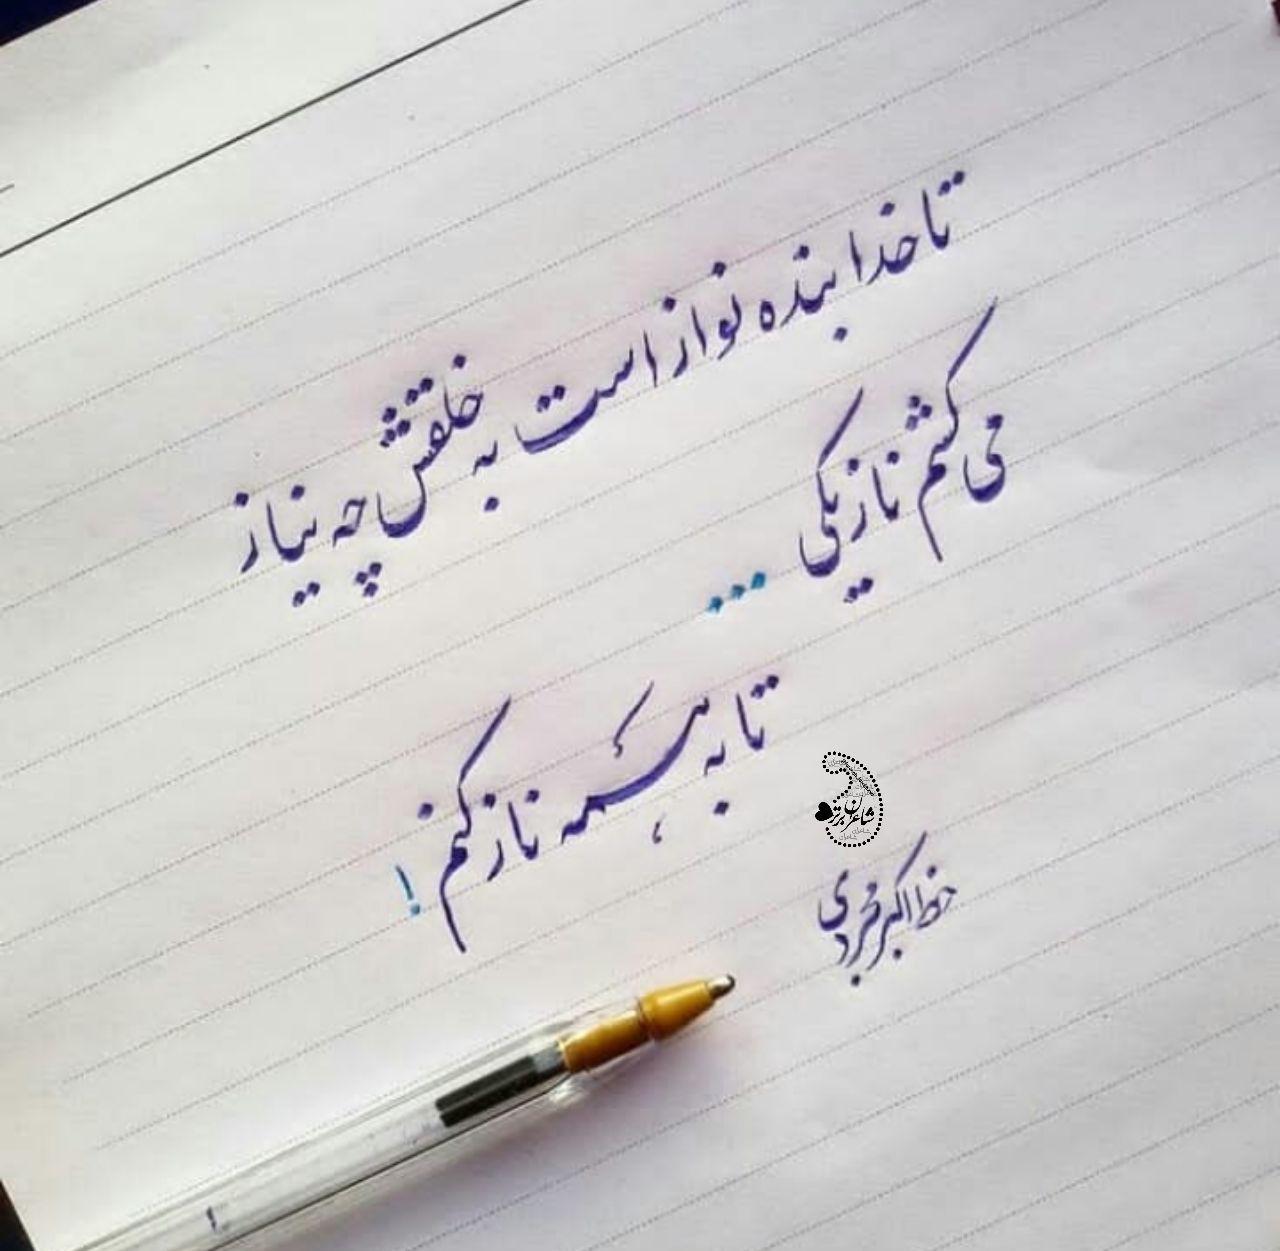 تا خدا بنده نواز است به خلقش چه نیاز
می کشم ناز یکی ...
تا به همه ناز کنم !
شاعران برتر
خط اکبر مجردی